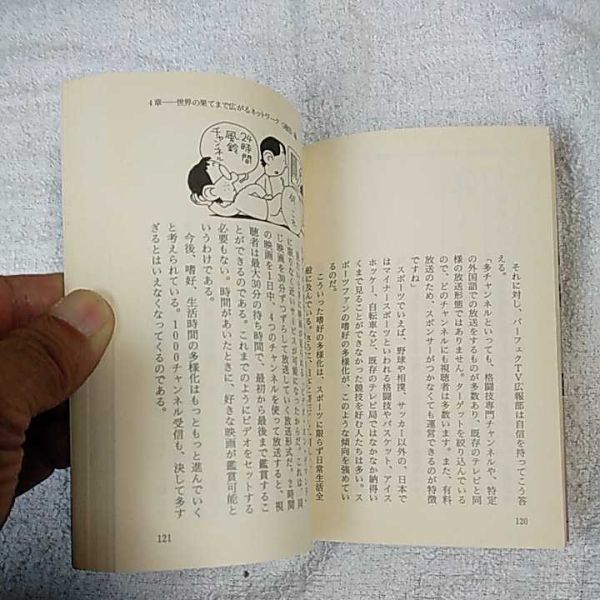 それに対し、パーフェクTV広報部は自信を持ってこう答
える。
「多チャンネルといっても、格闘技専門チャンネルや、特定
の外国語での放送をするものが多数あり、既存のテレビと同
様の放送形態ではありません。ターゲットを絞り込んでいる
ので、どのチャンネルにも視聴者は多数います。また、有料
放送のため、スポンサーがつかなくても運営できるのが特徴
ですね」
スポーツでいえば、野球や相撲、サッカー以外の、日本で
はマイナースポーツといわれる格闘技やバスケット、アイス
ホッケー、自転車など、既存のテレビ局ではなかなか納得い
くまで見ることができなかった競技を好む人たちは多い。ス
ポーツファンの嗜好の多様化が、このような傾向を強めてい
るのだ。
こういった嗜好の多様化は、スポーツに限らず日常生活全
般に及んでいる。さらに、
120
4章──世界の果てまで広がるネットワーク
24時間
風鈴
チャンネル
に限りなく近いサービスが可能になったからだ。これは、同
じ映画を30分ずつずらして放送していく放送形式だ。2時間
の映画を1日中、4つのチャンネルを使って放送すると、視
聴者は最大30分の待ち時間で、最初から最後まで鑑賞するこ
とができるのである。これまでのようにビデオをセットする
必要もない。時間があいたときに、好きな映画が鑑賞可能と
いうわけである。
今後、嗜好、生活時間の多様化はもっともっと進んでいく
と考えられている。1000チャンネル受信も、決して多す
ぎるとはいえなくなってくるのである。
121